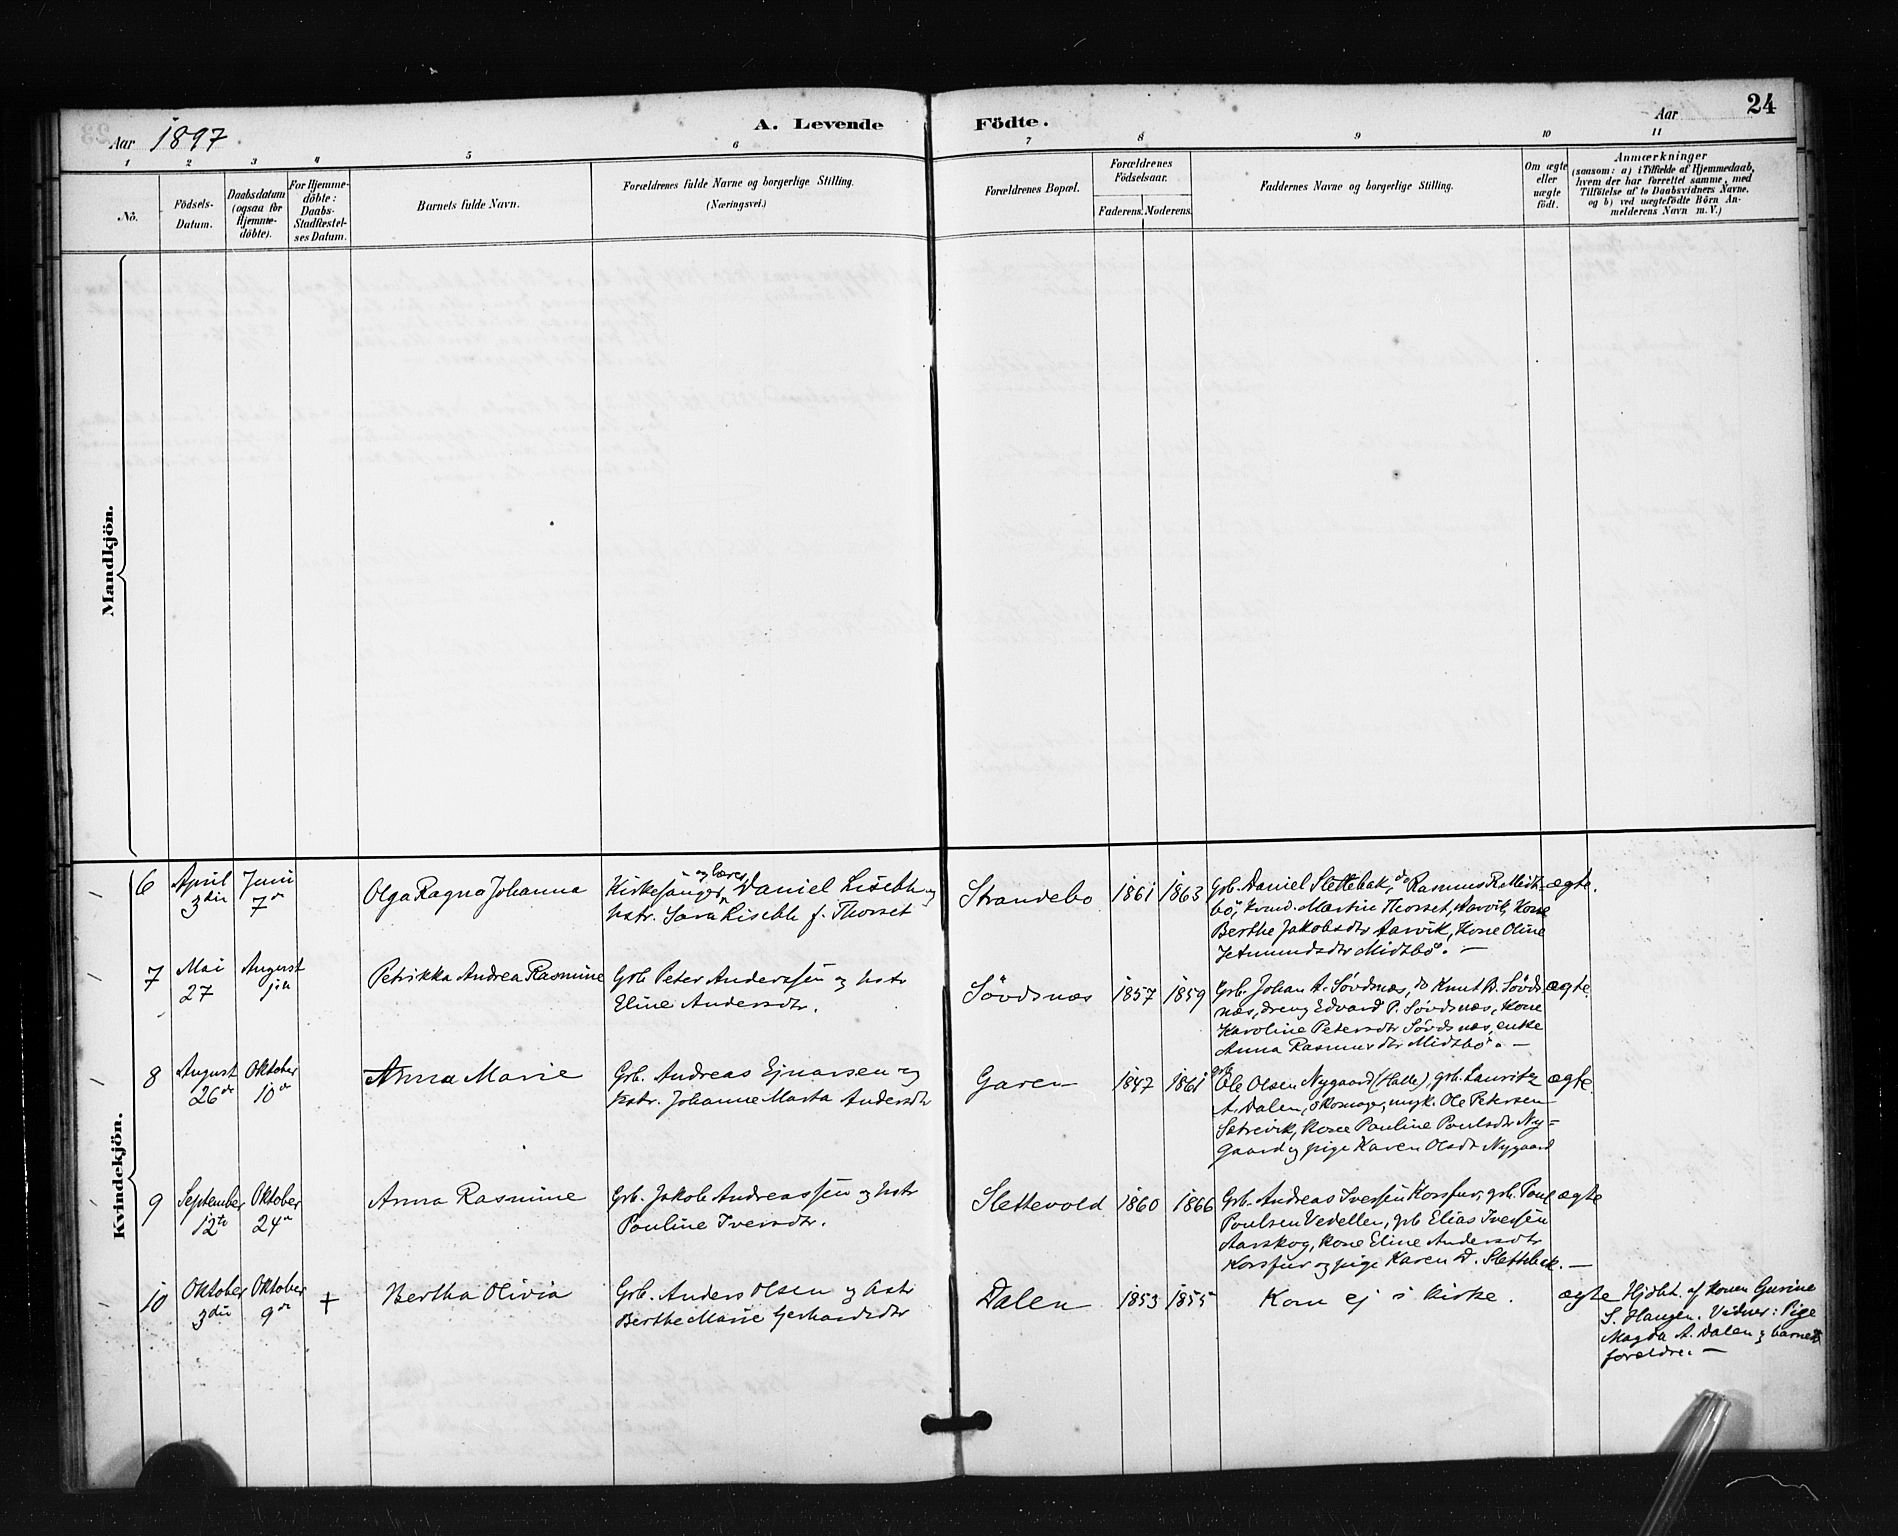 Aar 1897
A. Levende Födte.
Aar
24
1 2 3 4 5 6 7 8 9 10 11
No.
Födsels-Datum.
Daabsdatum (ogsaa for Hjemme-döbte).
For Hjemme-döbte: Daabs-Stadfæstel-ses Datum.
Barnets fulde Navn.
Forældrenes fulde Navne og borgerlige Stilling.
(Næringsvei.)
Forældrenes Bopæl.
Forældrenes Födselsaar.
Faderens. Moderens.
Faddernes Navne og borgerlige Stilling.
Om ægte eller uægte födt.
Anmærkninger
(saasom: a) i Tilfælde af Hjemmedaab,
hvem der har forrettet samme, med
Tilföielse af to Daabsvidners Navne.
og b) ved uægtefödte Börn An-
melderens Navn m. V.)
Mandkjön.
Kvindekjön.
6 April 3die Juni 7de Olga Ragna Johanna
Kirkesanger og lærer Daniel Liseth og
hstr. Sara Liseth f. Thorset
Strandebo 1861 1863
Grb. Daniel Slettebak, do Rasmus R. Midt-
bö, kvmd. Martin Thorset, Aarvik, Kone
Berthe Jakobsdtr Aarvik, Kone Oline
Jetmundsdtr Midtbö. —
ægte.
7 Mai 27 August Petrikka Andrea Rasmine
Grb Peter Anderssen og hstr
Eline Andersdtr.
Sövdsnæs 1857 1859
Grb. Johan A. Sövdsnæs, do Knut B. Sövds-
næs, dreng Edvard P. Sövdsnæs, Kone
Karoline Petersdtr Sövdsnæs, enke
Anna Rasmusdtr Midtbö. —
ægte.
8 August 26de Oktober 10de Anna Marie
Grb. Andreas Ejnarsen og
hstr. Johanne Marta Andersdtr
Garen 1847 1861
grb. Ole Olsen Nygaard (Halle), grb. Lauritz
A. Dalen, skomager, ungk. Ole Petersen
Sætrevik, Kone Pauline Poulsdtr Ny=
gaard og pige Karen Olsdtr Nygaard
ægte.
9 September 12te Oktober 24de Anna Rasmine
Grb. Jakob Andreassen og hstr
Pauline Iversdtr.
Slettevold 1860 1866
Grb. Andreas Iversen Korsfur, grb. Paul
Poulsen Vedeller, grb Elias Iversen
Aarskog, Kone Eline Andersdtr
Korsfur og pige Karen D. Slettebak. —
ægte
10 Oktober 3die Oktober 9de + Bertha Olivia
Grb. Anders Olsen og hstr
Berthe Marie Gerhardsdtr
Dalen 1853 1855
Kom ej i kirke.
ægte
Hjdbt. af konen Gurine
S. Haugen. Vidner: Pige
Magda A. Dalen og barnets
forældre. —